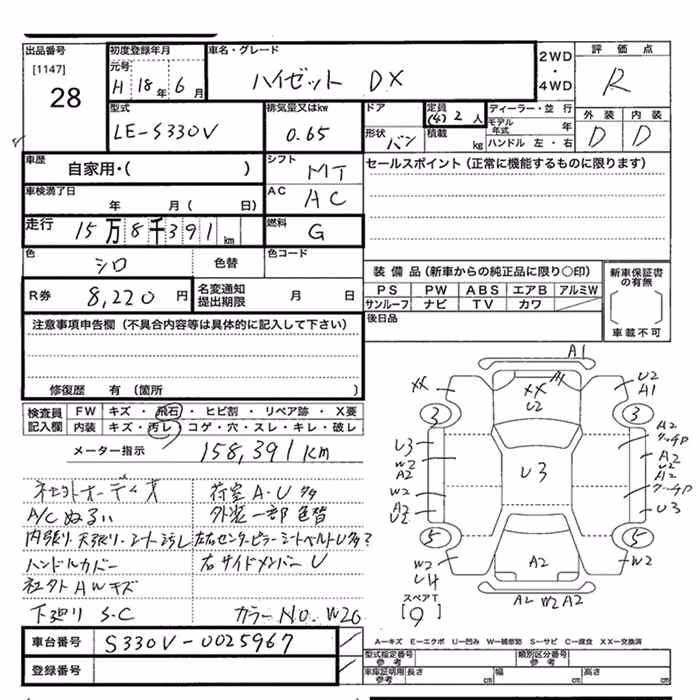 出品番号 初度登録年月 車名・グレード 2WD 評価点
[1147] 元号
28 H 18年 6月 ハイゼット DX ・ R
4WD
型式 排気量又はkw ドア 定員 ディーラー・並行 外装 内装
LE-S330V 0.65 (4) 2人 モデル年式 年 D D
形状 バン 積載 kg ハンドル 左・右
車歴 自家用・( ) シフト MT セールスポイント(正常に機能するものに限ります)
車検満了日 年 月( 日) AC AC
走行 15万8千391km 燃料 G
色 シロ 色替 色コード 装備品(新車からの純正品に限り○印) 新車保証書の有無
R券 8,220円 名変通知提出期限 月 日 PS PW ABS エアB アルミW
サンルーフ ナビ TV カワ
注意事項申告欄(不具合内容等は具体的に記入して下さい) 後日品 車載不可
修復歴 有(箇所 )
検査員記入欄 FW キズ・飛石・ヒビ割・リペア跡・X要
内装 キズ・汚レ・コゲ・穴・スレ・キレ・破レ
メーター指示 158,391km
A1
XX XX U2 U2 A1
3 3
U3 A2
W2 A2 U3 A2 U2 A2
W2
A2 U2 U3
5 5
W2 U4 A2 W2
A2 W2 A2
スペアT
[9]
荷室A・U
A/Cぬるい 外装一部色替
内張り・天張り・シート汚レ 左右センターピラーシートベルトU
ハンドルカバー 右サイドメンバーU
社外AWキズ
下廻りS.C カラーNO.W20
車台番号 S330V-0025967
登録番号
A-キズ E-エクボ U-凹み W-補修跡 S-サビ C-腐食 XX-交換済
型式指定番号 参考 類別区分番号 参考
車庫証明用 参考 長さ cm 幅 cm 高さ cm